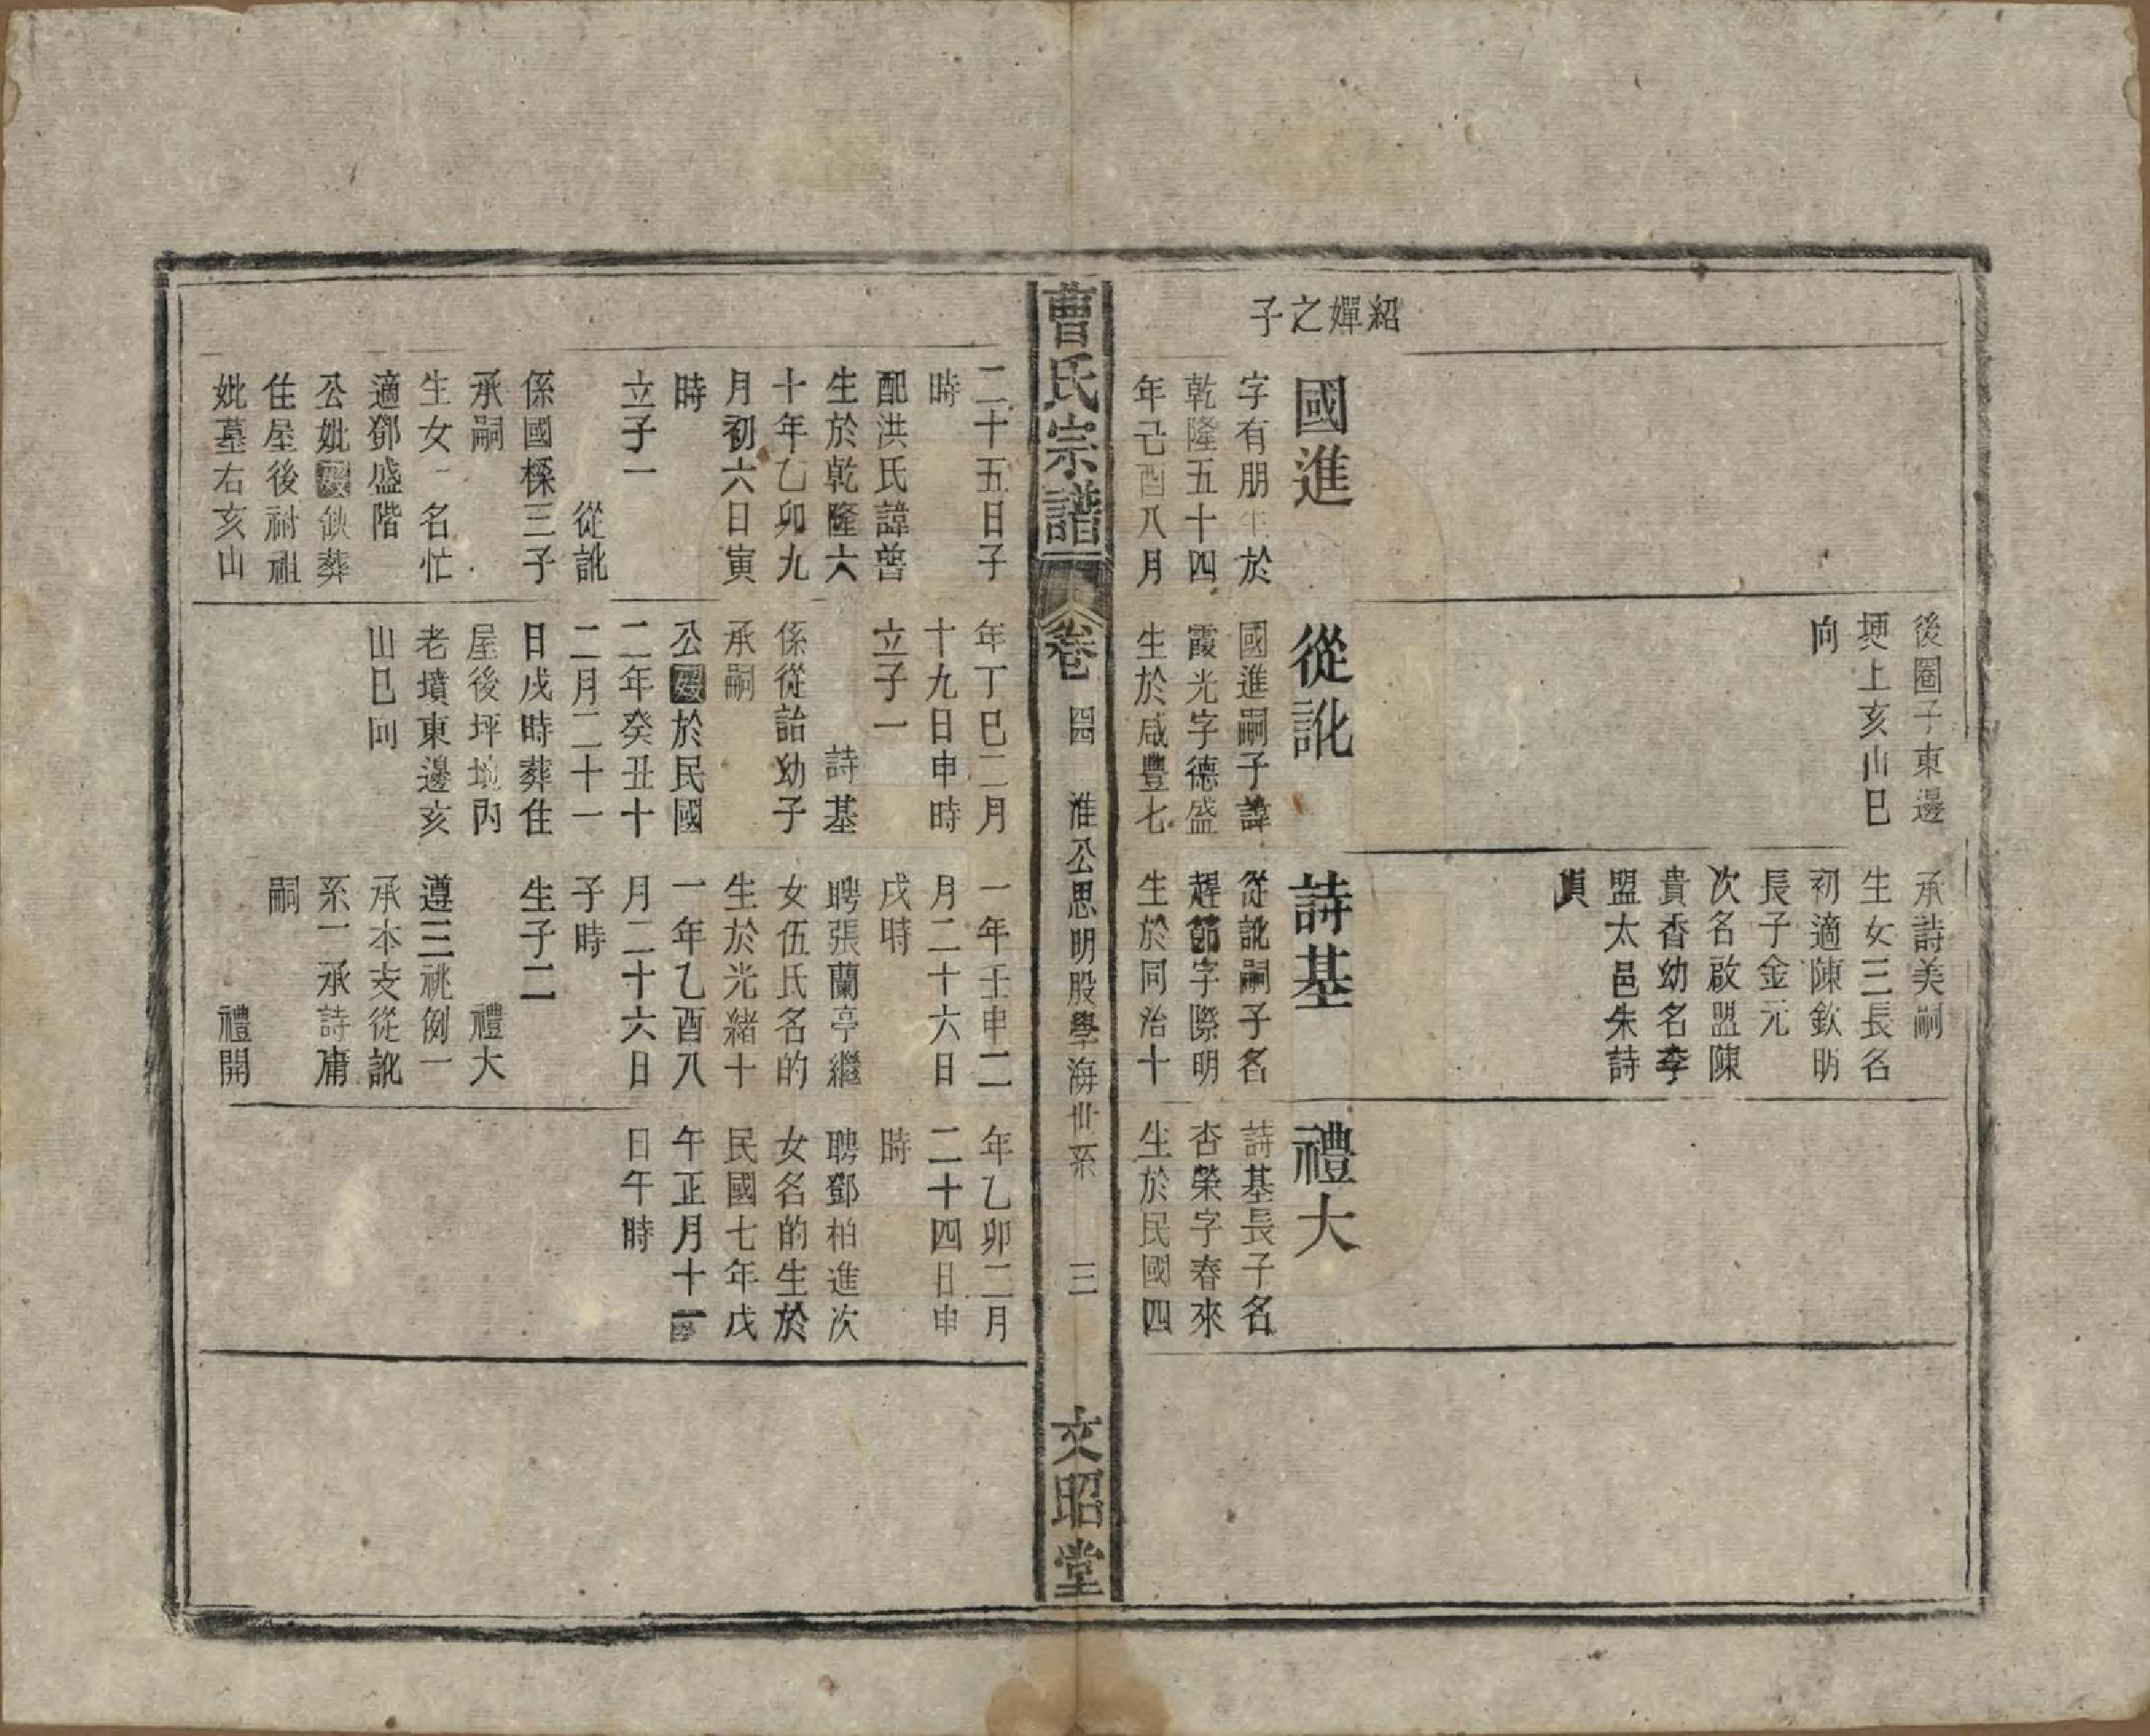 後圈子東邊
埂上亥山巳
向
承詩美嗣
生女三長名
初適陳欽明
長子金元
次名啟盟陳
貴香幼名李
盟太邑朱詩
貞
紹嬋之子
國進
字有朋生於
乾隆五十四
年己酉八月
從訛
國進嗣子諱
霞光字德盛
生於咸豐七
詩基
從訛嗣子名
趕節字際明
生於同治十
禮大
詩基長子名
杏榮字春來
生於民國四
曹氏宗譜
卷 四 淮公思明股學海世系 三
文昭堂
二十五日子
時
配洪氏諱善
生於乾隆六
十年乙卯九
月初六日寅
時
立子一
從訛
係國檪三子
承嗣
生女一名忙
適鄧盛階
公妣歿缺葬
住屋後祔祖
妣墓右亥山
年丁巳二月
十九日申時
立子一
詩基
係從詒幼子
承嗣
公歿於民國
二年癸丑十
二月二十一
日戌時葬住
屋後坪地內
老墳東邊亥
山巳向
一年壬申二
月二十六日
戌時
聘張蘭亭繼
女伍氏名的
生於光緒十
一年乙酉八
月二十六日
子時
生子二
禮大
遵三祧例一
承本支從訛
系一承詩庸
嗣
禮開
年乙卯二月
二十四日申
時
聘鄧柏進次
女名的生於
民國七年戊
午正月十一
日午時